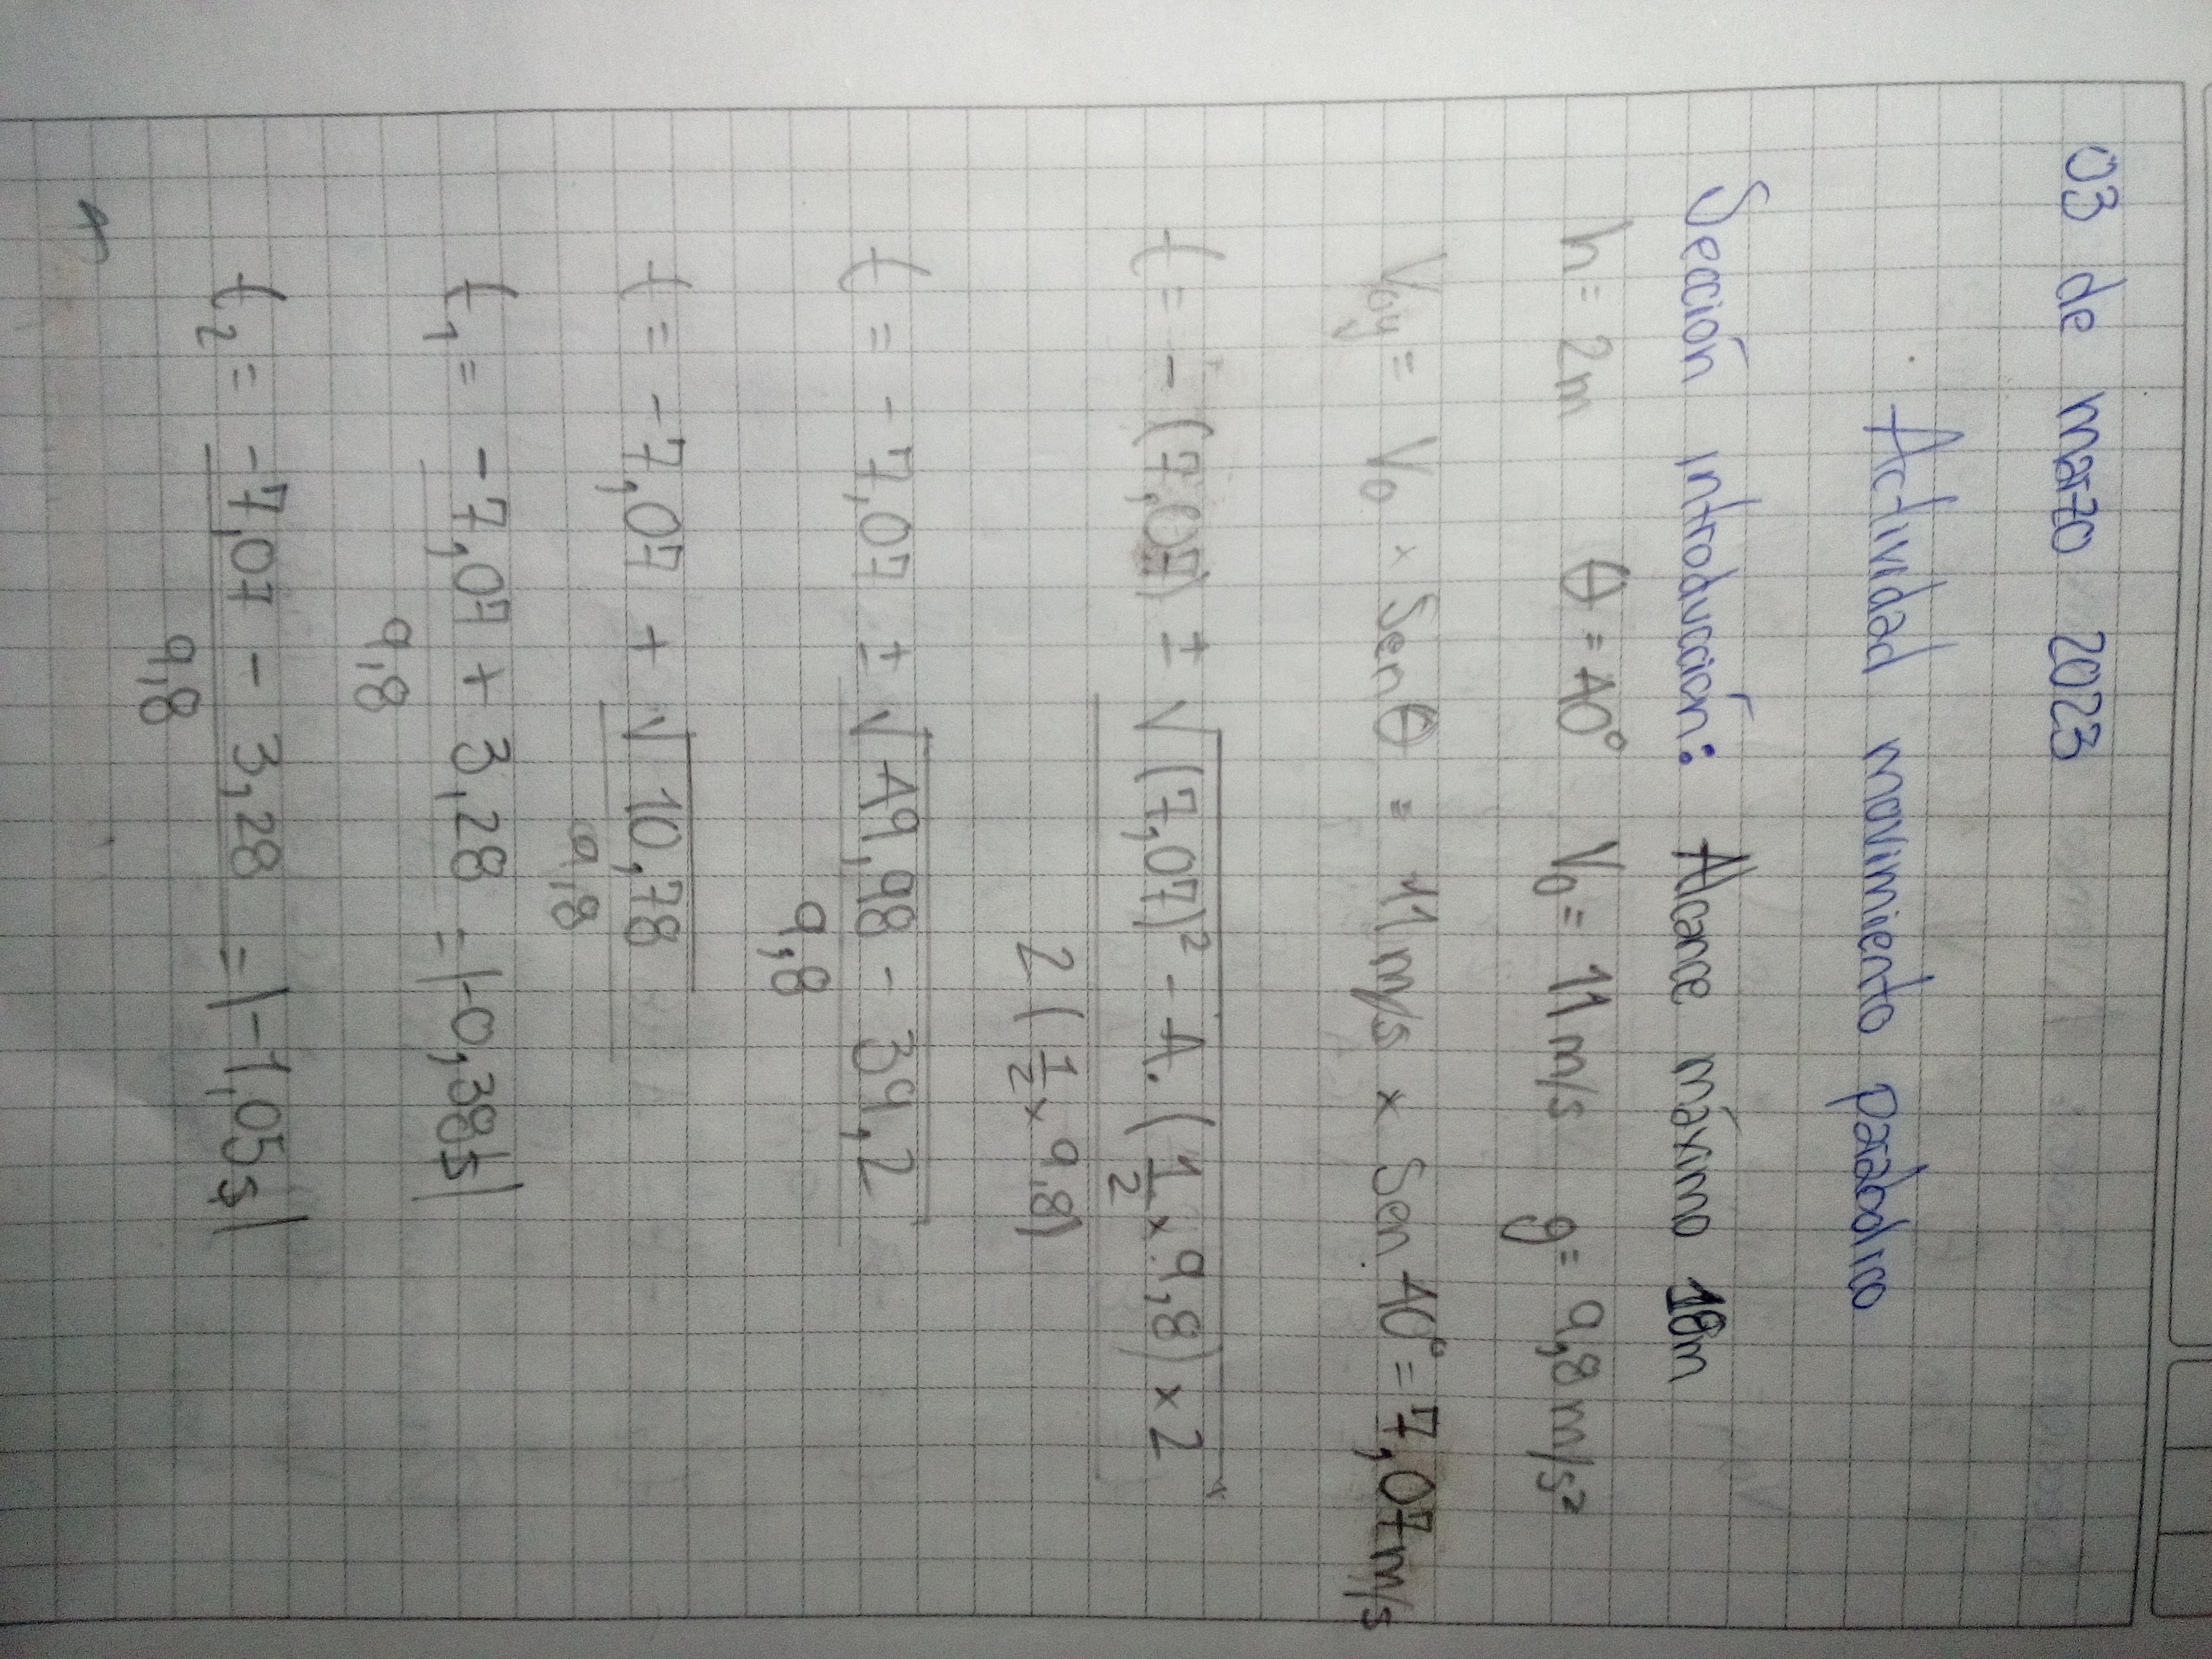 03 de marzo 2023
Actividad movimiento parabolico
Sección introducción: Alcance máximo 10m
h= 2m θ = 40° V₀ = 11 m/s g= 9,8 m/s²
V₀y = V₀ · Sen θ = 11 m/s × Sen 40° = 7,07 m/s
t = - (7,07) ± √(7,07)² - 4. (1/2 × 9,8) × 2
2 (1/2 × 9,8)
t = -7,07 ± √49,98 - 39,2
9,8
t = -7,07 + √10,78
9,8
t₁ = -7,07 + 3,28 = |-0,38s|
9,8
t₂ = -7,07 - 3,28 = |-1,05s|
9,8